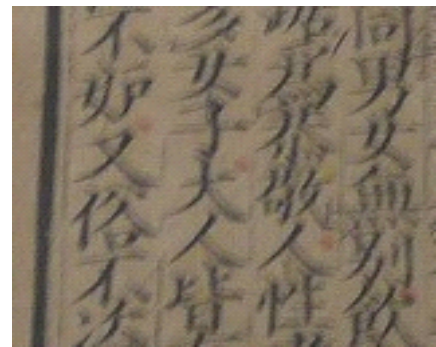 同男女無別飲
踞為恭敬人性
多女子大人皆
不妒又俗不盜